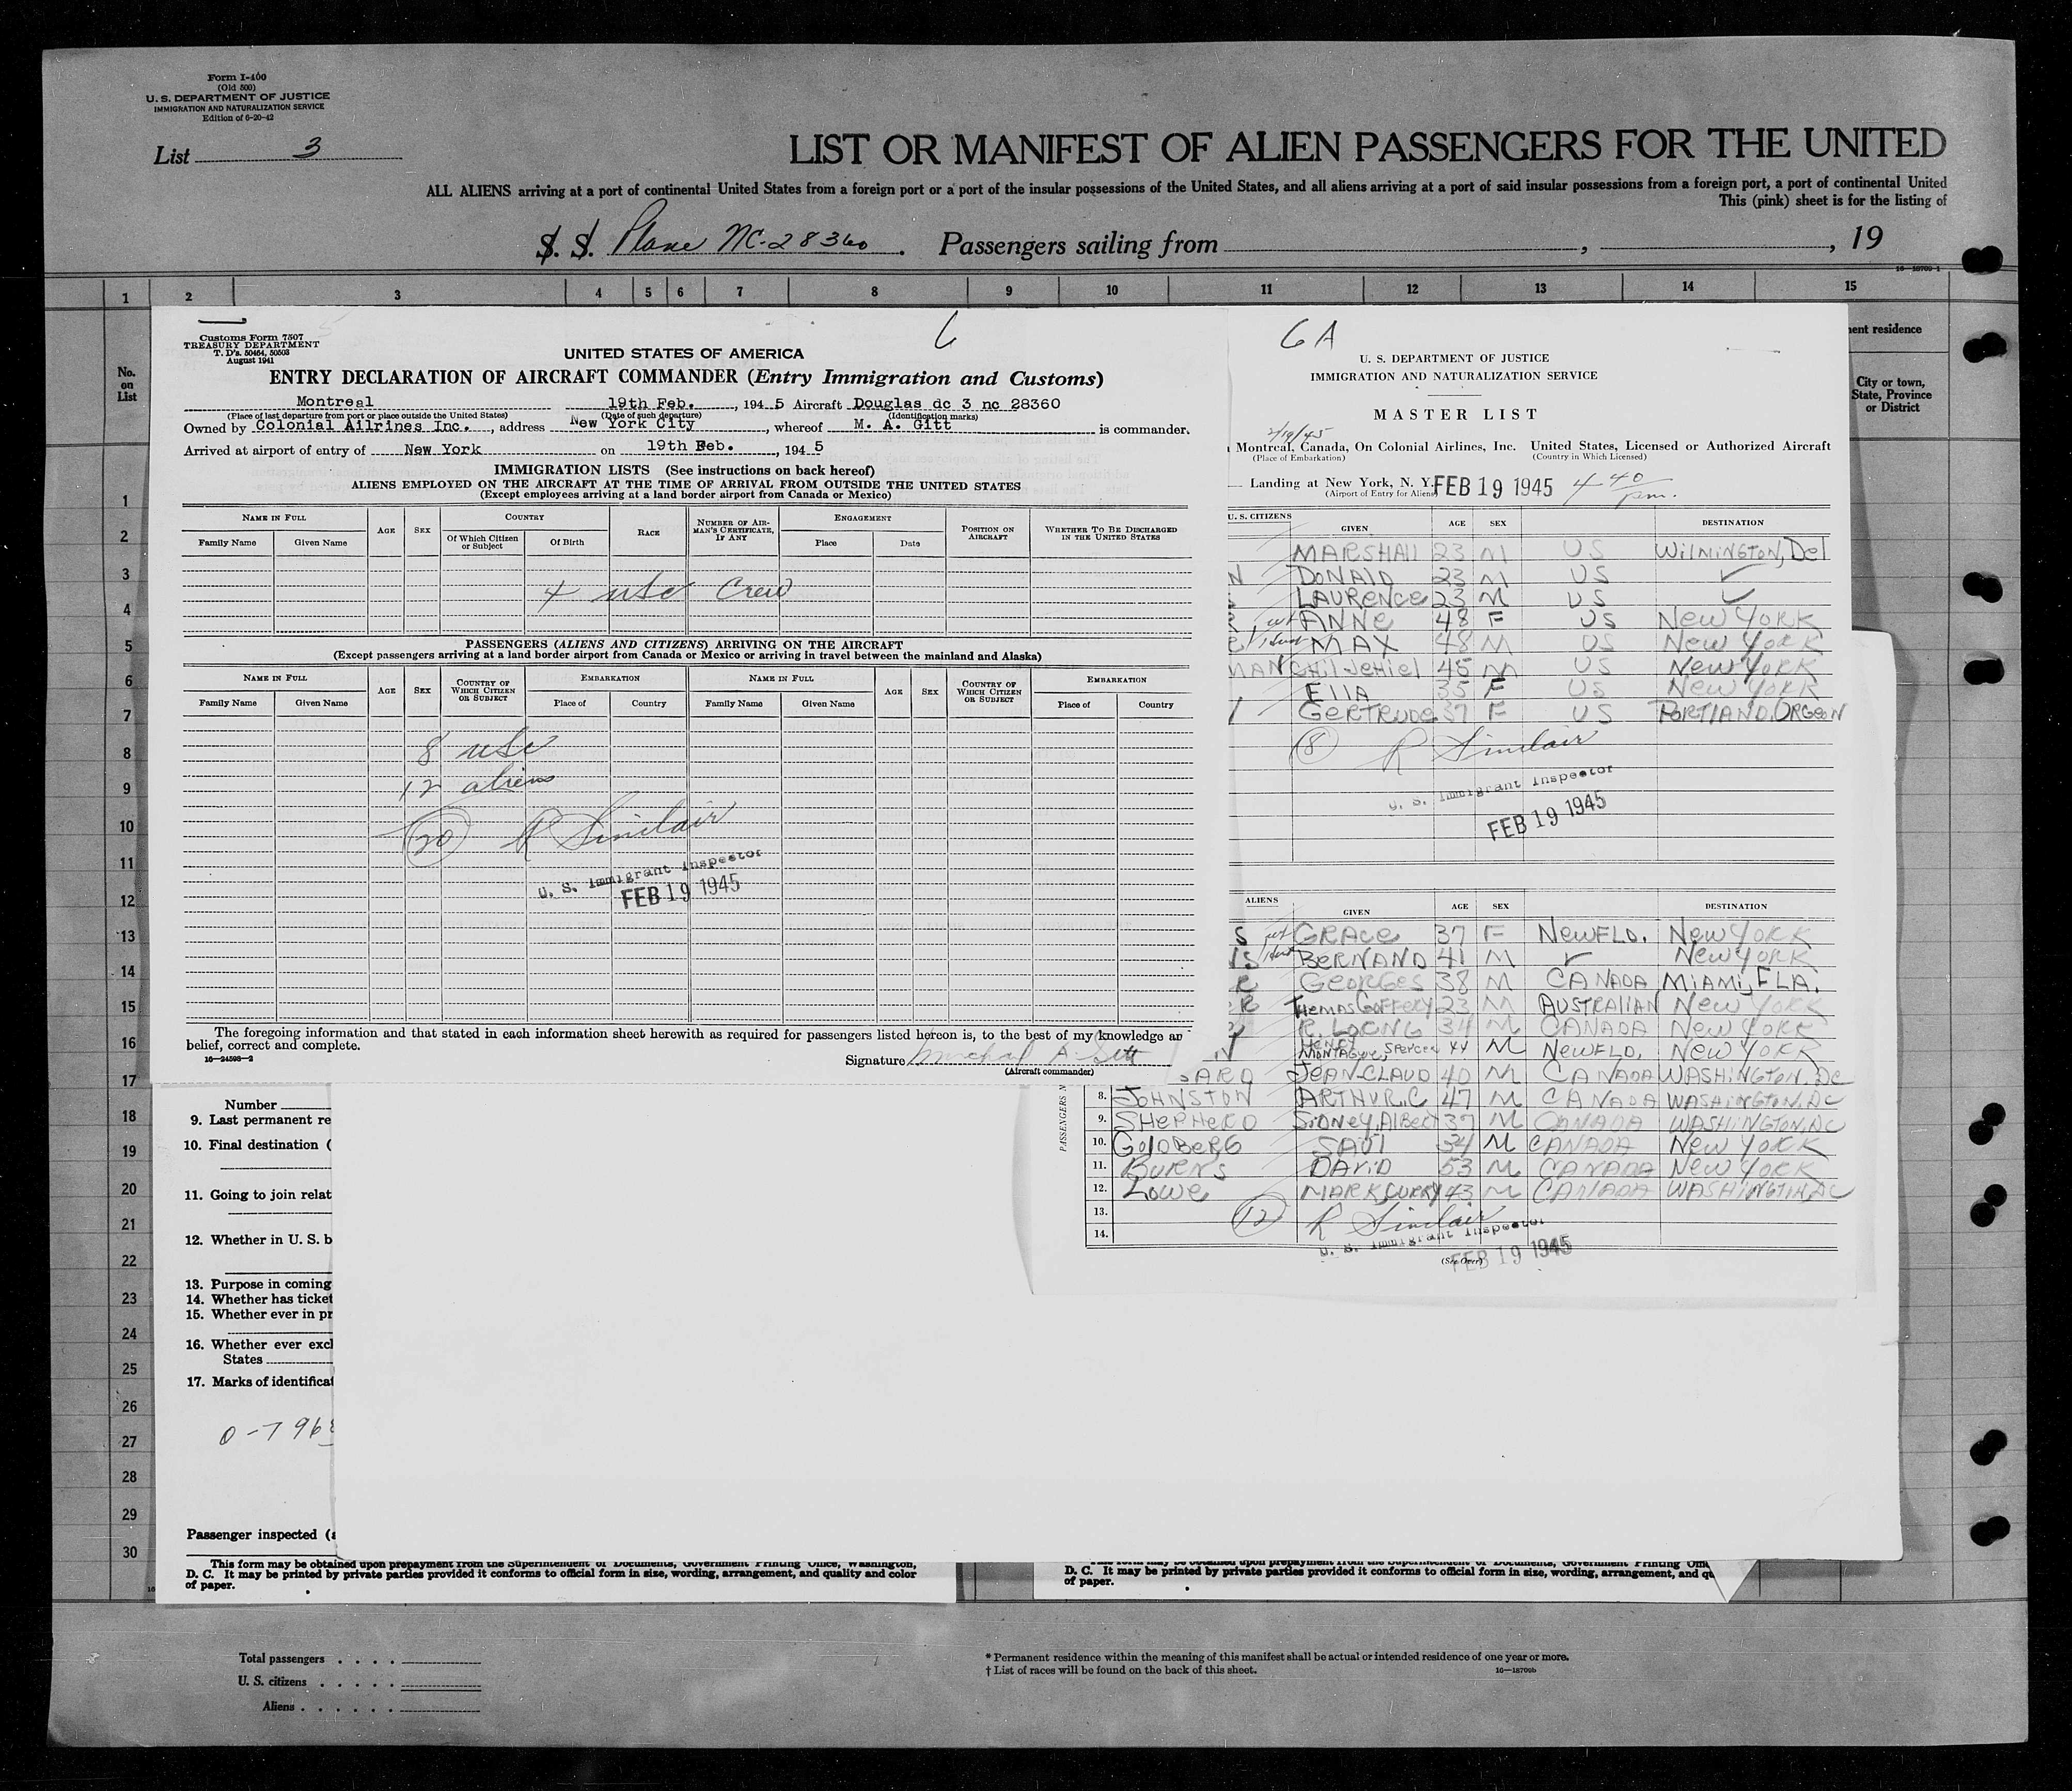 Form I-400
(Old 500)
U. S. DEPARTMENT OF JUSTICE
IMMIGRATION AND NATURALIZATION SERVICE
Edition of 6-20-42
List 3
LIST OR MANIFEST OF ALIEN PASSENGERS FOR THE UNITED
ALL ALIENS arriving at a port of continental United States from a foreign port or a port of the insular possessions of the United States, and all aliens arriving at a port of said insular possessions from a foreign port, a port of continental United
This (pink) sheet is for the listing of
S. S. Plane NC-28360. Passengers sailing from , , 19
16-18709-1
1 2 3 4 5 6 7 8 9 10 11 12 13 14 15
No.
on
List
ent residence
City or town,
State, Province
or District
1
2
3
4
5
6
7
8
9
10
11
12
13
14
15
16
17
18
19
20
21
22
23
24
25
26
27
28
29
30
6
Customs Form 7507
TREASURY DEPARTMENT
T. D's. 50464, 50503
August 1941
UNITED STATES OF AMERICA
ENTRY DECLARATION OF AIRCRAFT COMMANDER (Entry Immigration and Customs)
Montreal 19th Feb. , 194 5 Aircraft Douglas dc 3 nc 28360
(Place of last departure from port or place outside the United States) (Date of such departure) (Identification marks)
Owned by Colonial Ailrines Inc. , address New York City , whereof M. A. Gitt is commander.
Arrived at airport of entry of New York on 19th Feb. , 194 5
IMMIGRATION LISTS (See instructions on back hereof)
ALIENS EMPLOYED ON THE AIRCRAFT AT THE TIME OF ARRIVAL FROM OUTSIDE THE UNITED STATES
(Except employees arriving at a land border airport from Canada or Mexico)
NAME IN FULL AGE SEX COUNTRY RACE NUMBER OF AIRMAN'S CERTIFICATE, IF ANY ENGAGEMENT POSITION ON AIRCRAFT WHETHER TO BE DISCHARGED IN THE UNITED STATES
Family Name Given Name Of Which Citizen or Subject Of Birth Place Date
4 usc Crew
PASSENGERS (ALIENS AND CITIZENS) ARRIVING ON THE AIRCRAFT
(Except passengers arriving at a land border airport from Canada or Mexico or arriving in travel between the mainland and Alaska)
NAME IN FULL AGE SEX COUNTRY OF WHICH CITIZEN OR SUBJECT EMBARKATION NAME IN FULL AGE SEX COUNTRY OF WHICH CITIZEN OR SUBJECT EMBARKATION
Family Name Given Name Place of Country Family Name Given Name Place of Country
8 usc
12 aliens
20 R Sinclair
U. S. Immigrant Inspector
FEB 19 1945
The foregoing information and that stated in each information sheet herewith as required for passengers listed hereon is, to the best of my knowledge an
belief, correct and complete.
16-24593-2
Signature
(Aircraft commander)
6A
U. S. DEPARTMENT OF JUSTICE
IMMIGRATION AND NATURALIZATION SERVICE
MASTER LIST
2/19/45
Montreal, Canada, On Colonial Airlines, Inc. United States, Licensed or Authorized Aircraft
(Place of Embarkation) (Country in Which Licensed)
Landing at New York, N. Y. FEB 19 1945 4 40 pm.
(Airport of Entry for Aliens)
U.S. CITIZENS GIVEN AGE SEX DESTINATION
MARSHALL 23 M US WILMINGTON, Del
N DONALD 23 M US ✓
LAURENCE 23 M US ✓
R ANNE 48 F US NEW YORK
MAX 48 M US NEW YORK
MAN CHIL JEHIEL 45 M US NEW YORK
ELLA 35 F US NEW YORK
GERTRUDE 37 F US PORTLAND, ORGEON
8 R Sinclair
U. S. Immigrant Inspector
FEB 19 1945
ALIENS GIVEN AGE SEX DESTINATION
S GRACE 37 F NEWFLD. NEW YORK
S BERNAND 41 M ✓ NEW YORK
R GEORGES 38 M CANADA MIAMI, FLA.
R THOMAS GOFFERY 23 M AUSTRALIAN NEW YORK
R. LORNG 34 M CANADA NEW YORK
HENRY MONTAGUE, SPENCER 44 M NEWFLD. NEW YORK
ARD JEAN-CLAUD 40 M CANADA WASHINGTON, DC
PASSENGERS
8. JOHNSTON ARTHUR.C 47 M CANADA WASHINGTON, DC
9. SHEPHERD SIDNEY, ALBERT 37 M CANADA WASHINGTON, DC
10. GOLDBERG SAUL 34 M CANADA NEW YORK
11. BURNS DAVID 53 M CANADA NEW YORK
12. LOWE MARK, CURRY 43 M CANADA WASHINGTON, DC
13.
14.
12 R Sinclair
U. S. Immigrant Inspector
FEB 19 1945
(See Over)
Number
9. Last permanent re
10. Final destination (
11. Going to join relat
12. Whether in U. S. b
13. Purpose in coming
14. Whether has ticket
15. Whether ever in pr
16. Whether ever excl
States
17. Marks of identificat
0-796
Passenger inspected (a
This form may be obtained upon prepayment from the Superintendent of Documents, Government Printing Office, Washington,
D. C. It may be printed by private parties provided it conforms to official form in size, wording, arrangement, and quality and color
of paper.
This form may be obtained upon prepayment from the Superintendent of Documents, Government Printing Offi
D. C. It may be printed by private parties provided it conforms to official form in size, wording, arrangement, and qu
of paper.
Total passengers
U. S. citizens
Aliens
* Permanent residence within the meaning of this manifest shall be actual or intended residence of one year or more.
† List of races will be found on the back of this sheet.
16-18709b